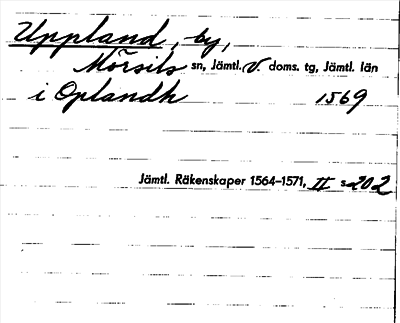 Uppland, by,
Mörsils sn, Jämtl. v. doms. tg, Jämtl. län
i Oplandh 1569
Jämtl. Räkenskaper 1564–1571, II s. 202